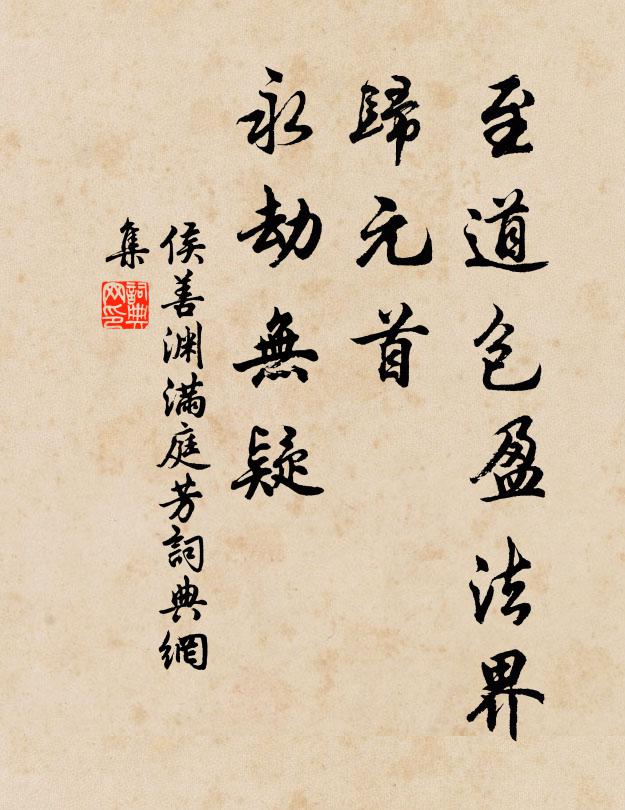 至道包盈法界
歸元首
永劫無疑
侯善渊滿庭芳詞典網
集
詞典網印